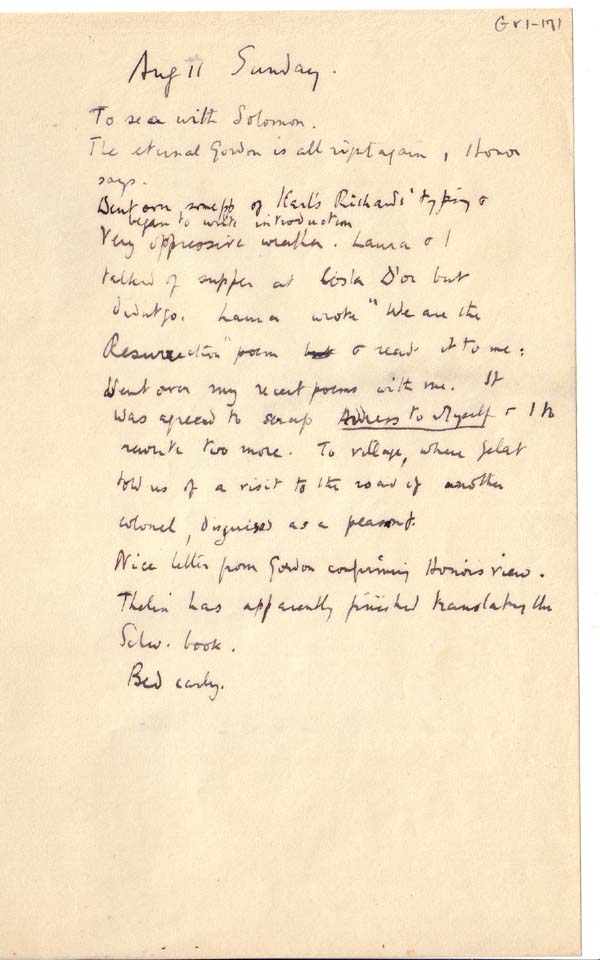 GV1-171
Aug 11 Sunday.
To sea with Solomon.
The eternal Gordon is all right again, Honor
says.
Went over some pp of Karl's Richards' typing &
began to write introduction
Very oppressive weather. Laura & I
talked of supper at Costa D'or but
didn't go. Laura wrote "We are the
Resurrection" poem but & read it to me:
Went over my recent poems with me. It
was agreed to scrap Address to Myself & I to
rewrite two more. To village, where Gelat
told us of a visit to the road of another
colonel, disguised as a peasant.
Nice letter from Gordon confirming Honor's view.
has apparently finished translating the
book.
Bed early.